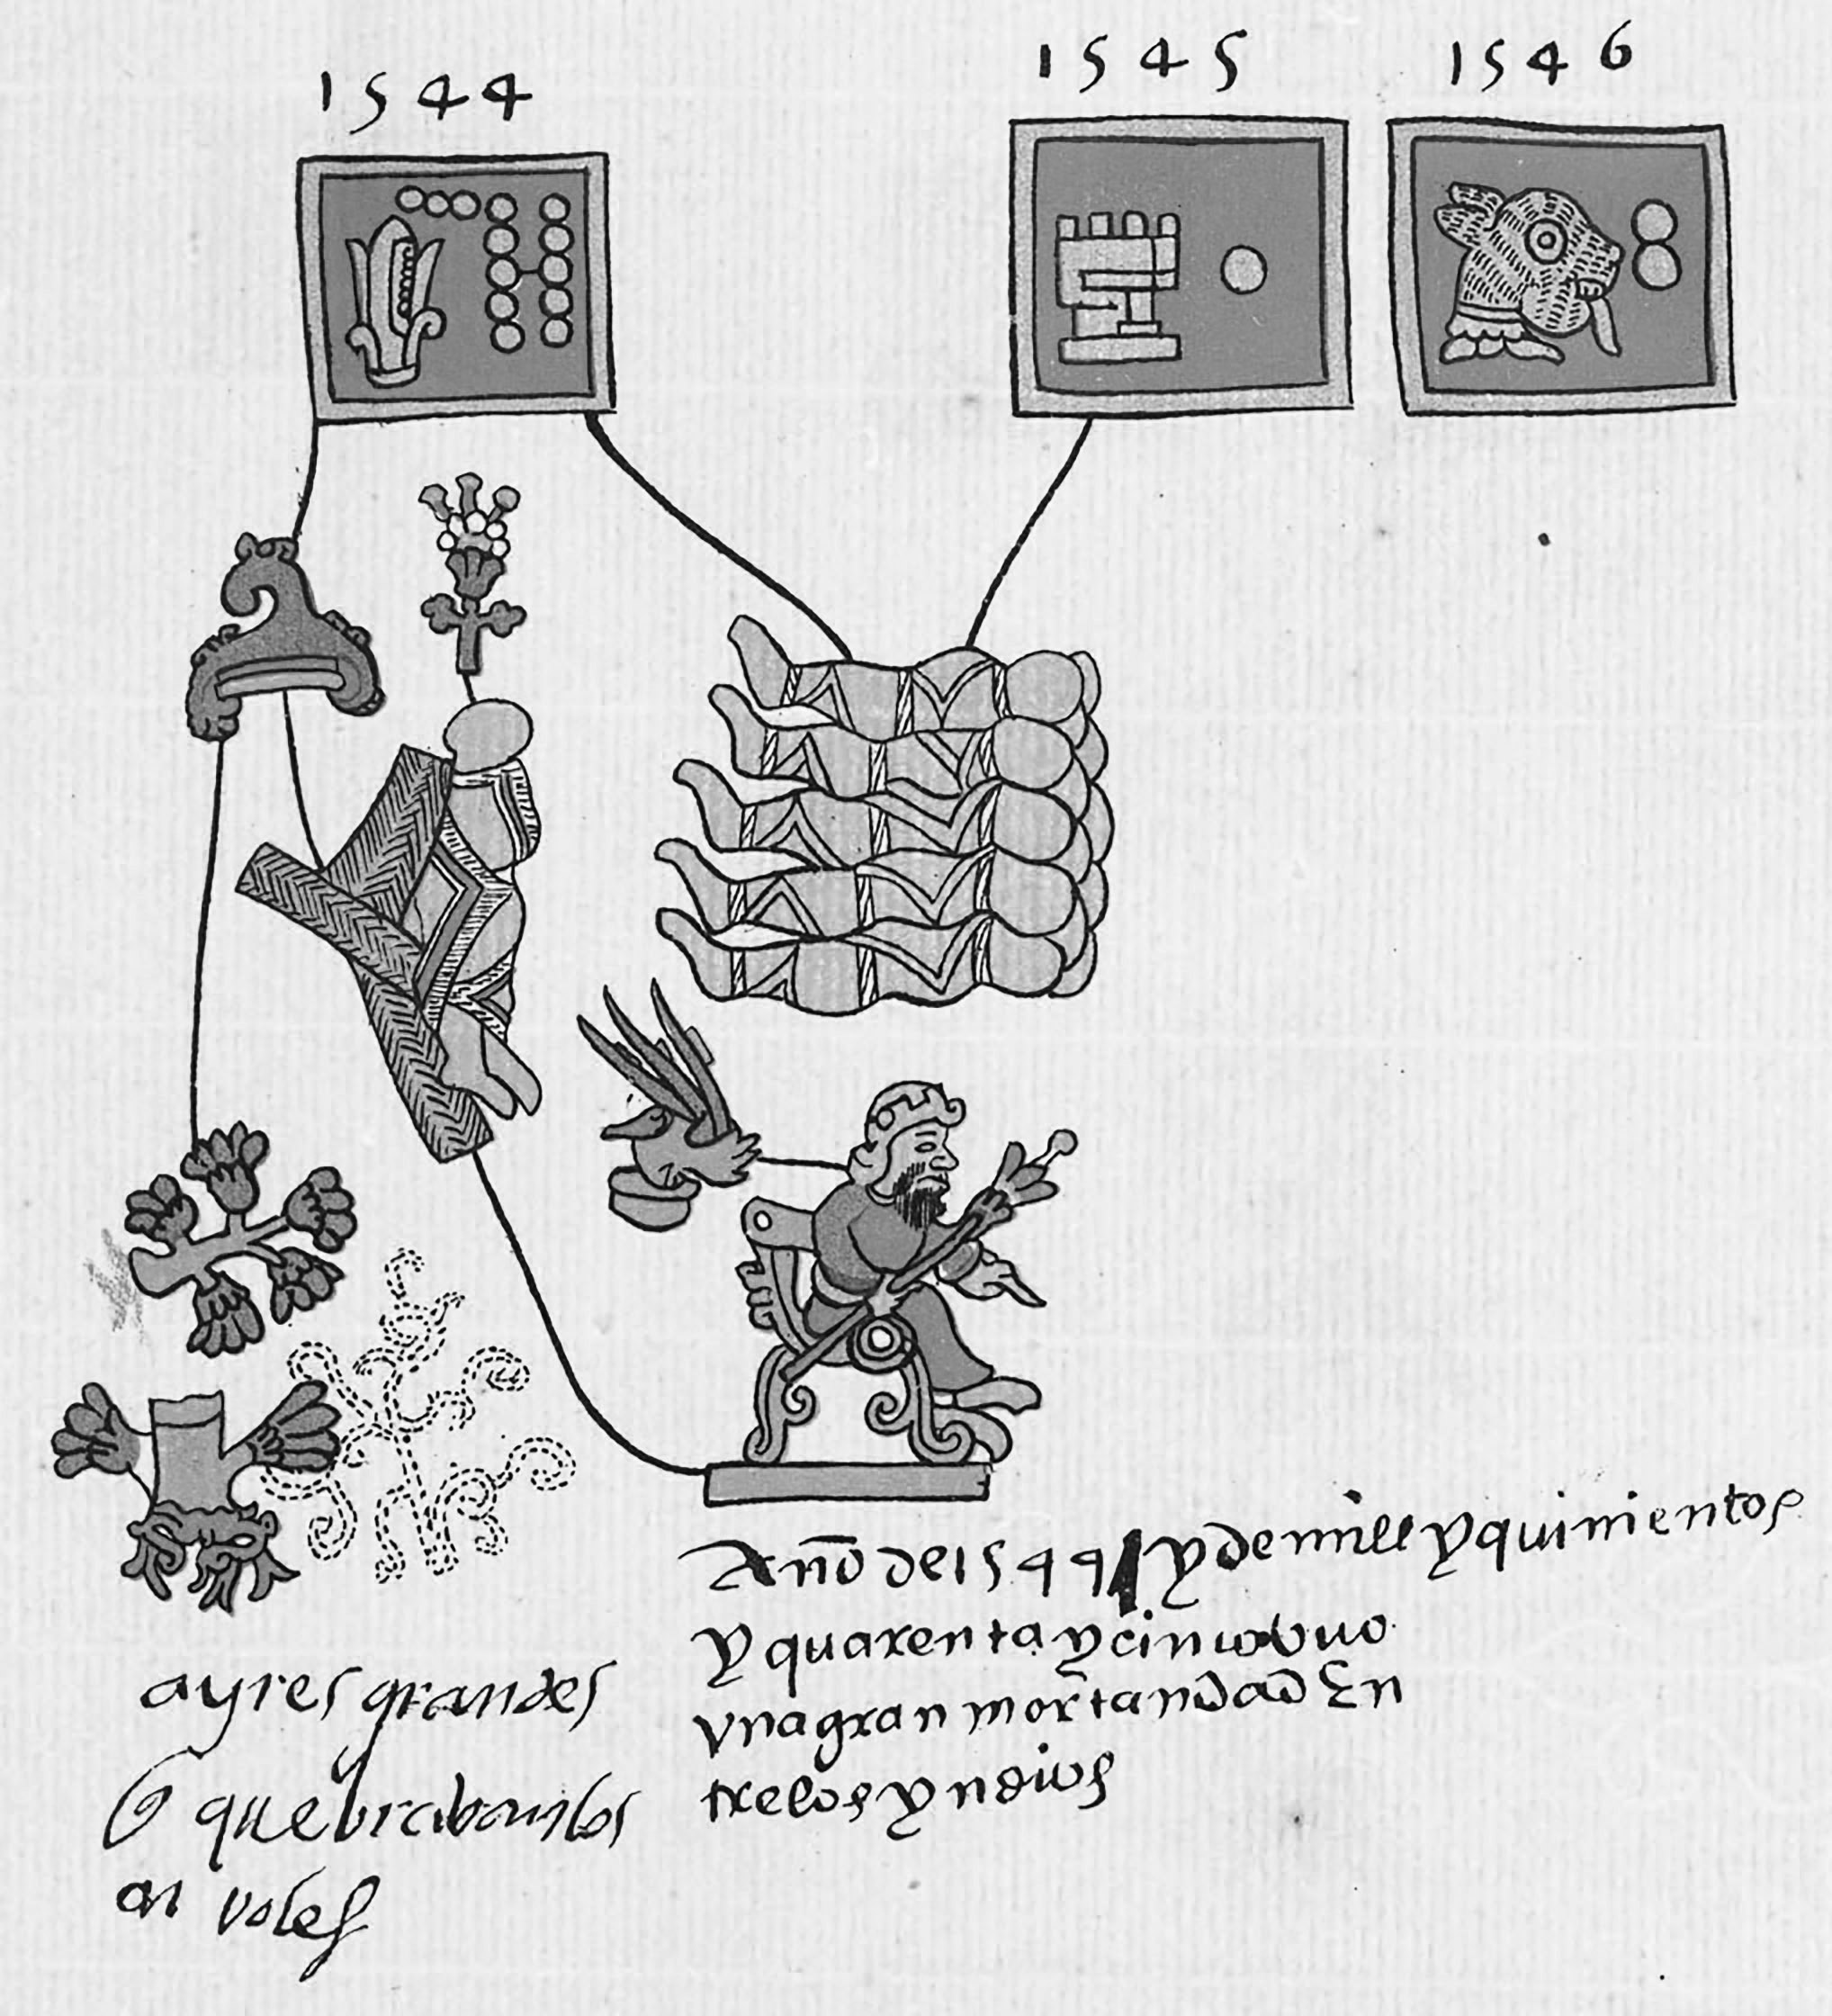 1544
1545
1546
Año de 1544 / y de mill y quinientos
y quarenta y cinco ubo
vna gran mortandad En
tre los yndios
ayres grandes
q quebrabanlos
arvoles